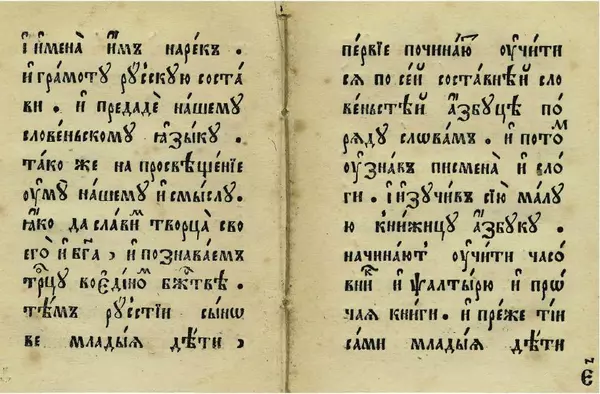 і҆ и҆мена̀ и҆̀мъ наре́къ .
и҆ гра́моту ру́сскую соста́
ви . и҆ предадѐ на́шему
слове́ньскому ꙗ҆зы́ку .
та́ко же на просвѣще́нїе
оу҆мꙋ̀ на́шему и҆ смы́слу .
ꙗ҆́ко да сла́витⷨ творца̀ сво
его̀ и҆ бг҃а , и҆ познава́емъ
трⷪ҇цу воеди́ноⷨ бж҃твѣ .
тѣ́мъ ру́сстїи сы́нѡ
ве младыѧ дѣ́ти ,
пе́рвїе почина́ютⷮ оу҆чи́ти
сѧ по се́й соста́внѣй сло
ве́ньстѣй а҆́збуцѣ по
рѧ́ду слѡва́мъ . и҆ пото́ⷨ
оу҆зна́въ писмена̀ и҆ сло́
ги . і҆ и҆зучи́въ сїю̀ ма́лу
ю кни́жицу а҆́збуку .
начина́ютъ оу҆чи́ти часо́
вниⷦ и҆ ѱалты́рю и҆ прѡ́
чаѧ кни́ги . и҆ пре́же ті́и
са́ми младыѧ дѣ́ти
є҃